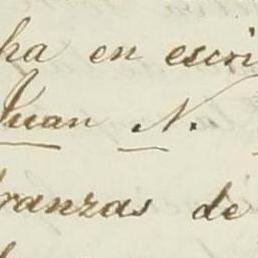 ha en escri
Juan N.
ranzas de